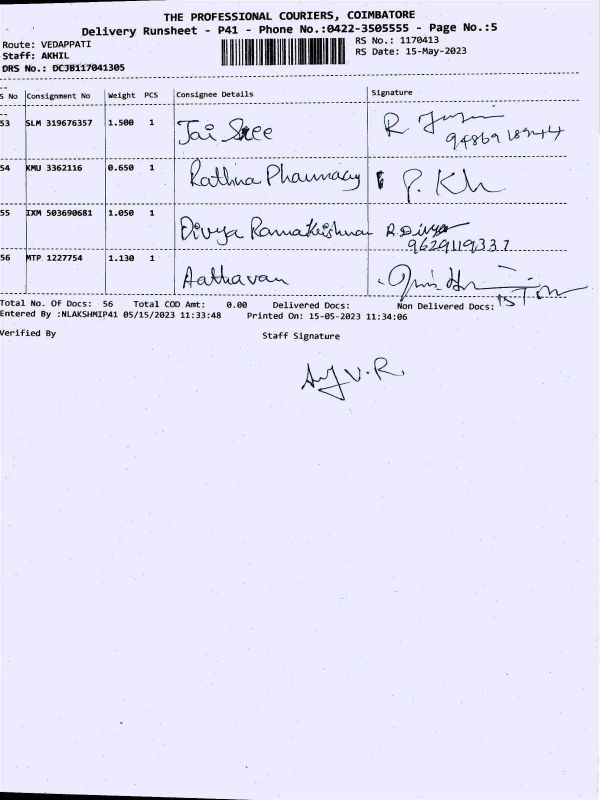 THE PROFESSIONAL COURIERS, COIMBATORE
Delivery Runsheet - P41 - Phone No.:0422-3505555 - Page No.:5
Route: VEDAPPATI RS No.: 1170413
Staff: AKHIL RS Date: 15-May-2023
DRS No.: DCJB117041305
S No Consignment No Weight PCS Consignee Details Signature
53 SLM 319676357 1.500 1 Jai Sree R
54 KMU 3362116 0.650 1 Rathna Pharmacy P. Kh
55 IXM 503690681 1.050 1 Divya Ramakrishnan R.Divya
9629119337
56 MTP 1227754 1.130 1 Aathavan
Total No. Of Docs: 56 Total COD Amt: 0.00 Delivered Docs: Non Delivered Docs:
Entered By :NLAKSHMIP41 05/15/2023 11:33:48 Printed On: 15-05-2023 11:34:06
Verified By Staff Signature
V.R.